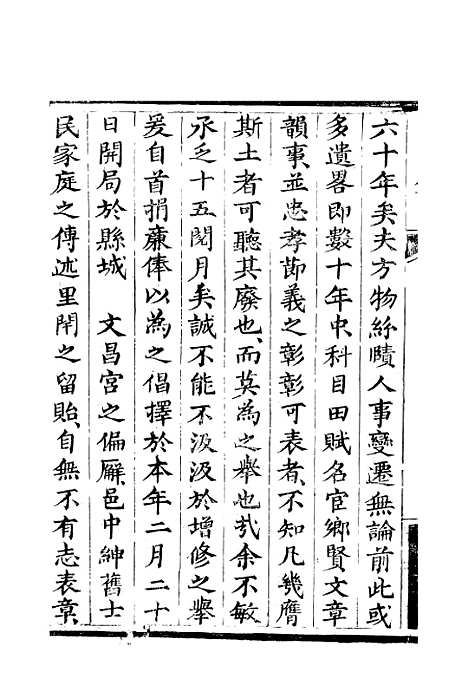 六十年矣夫方物紛賾人事變遷無論前此或
多遺畧即數十年中科目田賦名宦鄉賢文章
韻事並忠孝節義之彰彰可表者不知凡幾膺
斯土者可聽其廢也而莫為之舉也㢤余不敏
承乏十五閱月矣誠不能不汲汲於增修之舉
爰自首捐㢘俸以為之倡擇於本年二月二十
日開局於縣城　文昌宮之偏厢邑中紳舊士
民家庭之傳述里閈之留貽自無不有志表章